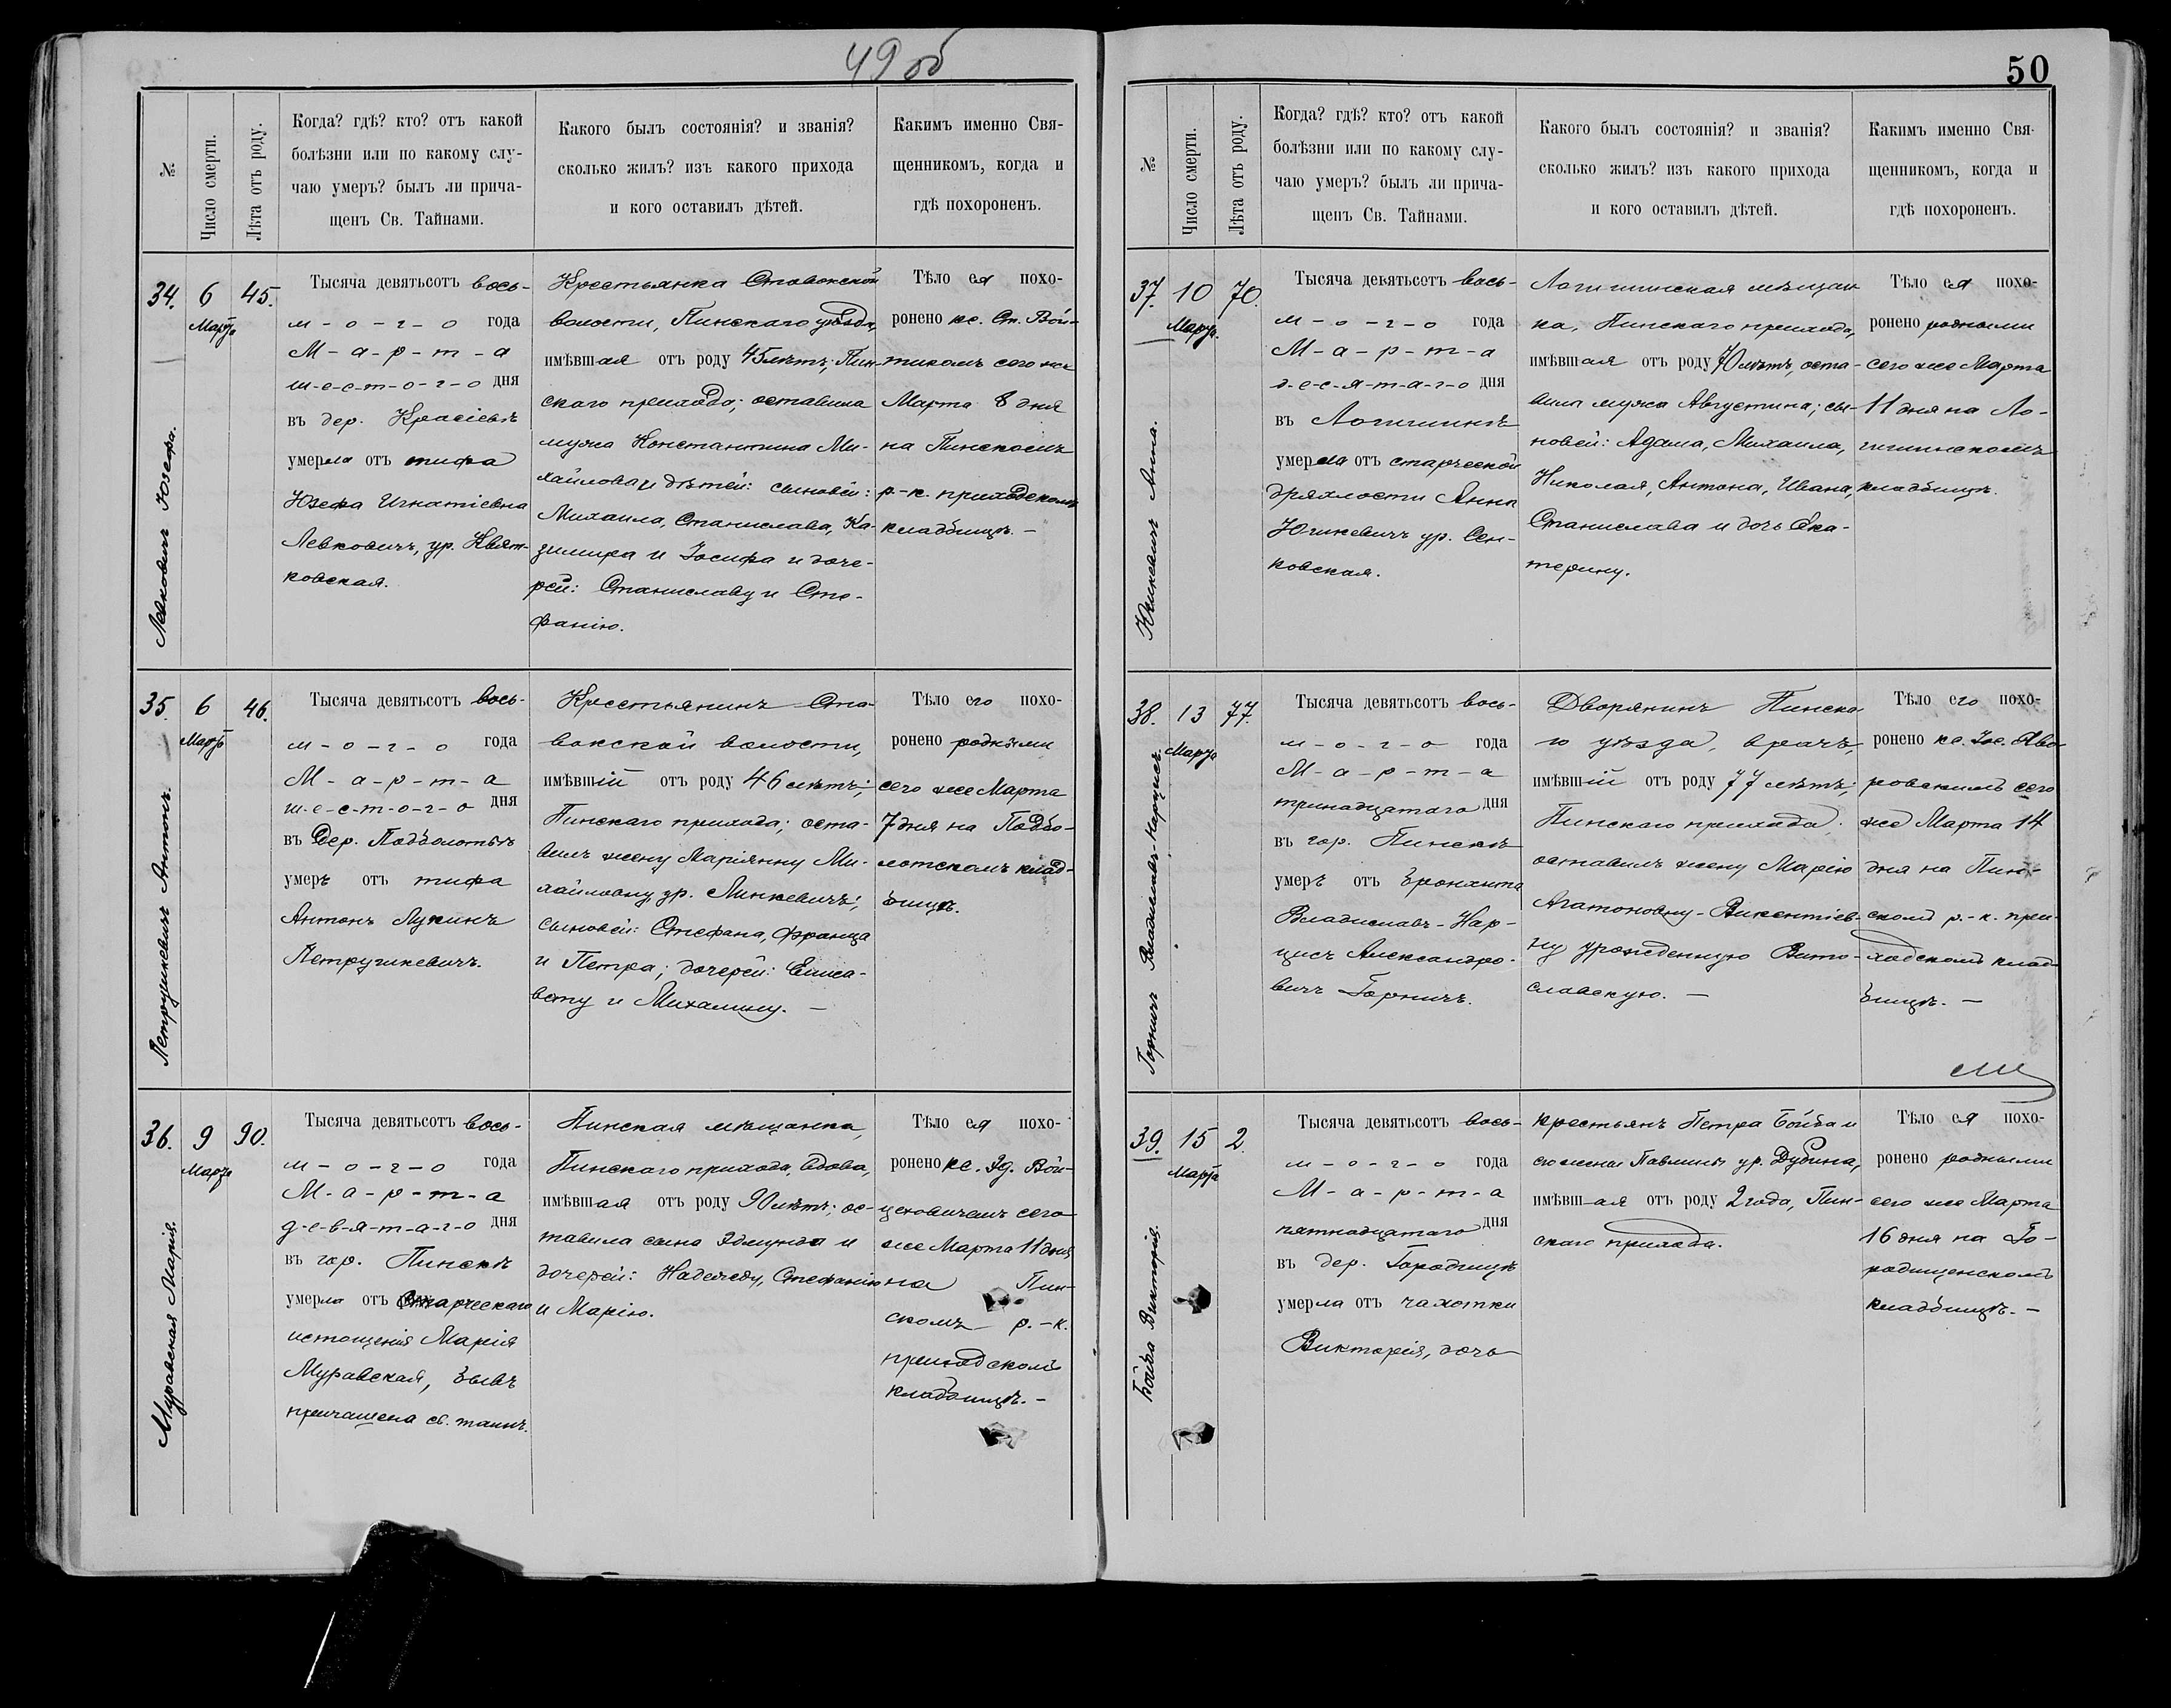 49 об
№
Число смерти.
Лѣта отъ роду.
Когда? гдѣ? кто? отъ какой
болѣзни или по какому слу-
чаю умеръ? былъ ли прича-
щенъ Св. Тайнами.
Какого былъ состоянія? и званія?
сколько жилъ? изъ какого прихода
и кого оставилъ дѣтей.
Какимъ именно Свя-
щенникомъ, когда и
гдѣ похороненъ.
34.
6
Марта
45.
Левковичъ Юзефа.
Тысяча девятьсотъ вось-
м-о-г-о года
М-а-р-т-а
ш-е-с-т-о-г-о дня
въ дер. Красіевѣ
умерла отъ тифа
Юзефа Игнатіевна
Левковичъ, ур. Квят-
ковская.
Крестьянка Ставокской
волости, Пинскаго уѣзда,
имѣвшая отъ роду 45 лѣтъ; Пин-
скаго прихода; оставила
мужа Константина Ми-
хайлова и дѣтей: сыновей:
Михаила, Станислава, Ка-
зимира и Іосифа и доче-
рей: Станиславу и Сте-
фанію.
Тѣло ея похо-
ронено кс. Ст. Вой-
тикомъ сего же
Марта 8 дня
на Пинскомъ
р.-к. приходскомъ
кладбищѣ. -
35.
6
Марта
46.
Петрушкевичъ Антонъ.
Тысяча девятьсотъ вось-
м-о-г-о года
М-а-р-т-а
ш-е-с-т-о-г-о дня
въ Дер. Подболотьѣ
умеръ отъ тифа
Антонъ Лукинъ
Петрушкевичъ.
Крестьянинъ Ста-
вокской волости,
имѣвшій отъ роду 46 лѣтъ;
Пинскаго прихода; оста-
вилъ жену Маріянну Ми-
хайловну ур. Линкевичъ;
сыновей: Стефана, Франца
и Петра; дочерей: Елиса-
вету и Михалину. -
Тѣло его похо-
ронено родными
сего же Марта
7 дня на Подбо-
лотскомъ клад-
бищѣ.
36.
9
Марта
90.
Муравская Марія.
Тысяча девятьсотъ вось-
м-о-г-о года
М-а-р-т-а
д-е-в-я-т-а-г-о дня
въ гор. Пинскѣ
умерла отъ старческаго
истощенія Марія
Муравская, бывъ
причащена св. таинъ.
Пинская мѣщанка,
Пинскаго прихода, вдова,
имѣвшая отъ роду 90 лѣтъ; ос-
тавила сына Эдмунда и
дочерей: Надежду, Стефанію
и Марію.
Тѣло ея похо-
ронено кс. Эд. Вой-
цеховичемъ сего
же Марта 11 дня
на Пин-
скомъ р.-к.
приходскомъ
кладбищѣ. -
50
№
Число смерти.
Лѣта отъ роду.
Когда? гдѣ? кто? отъ какой
болѣзни или по какому слу-
чаю умеръ? былъ ли прича-
щенъ Св. Тайнами.
Какого былъ состоянія? и званія?
сколько жилъ? изъ какого прихода
и кого оставилъ дѣтей.
Какимъ именно Свя-
щенникомъ, когда и
гдѣ похороненъ.
37.
10
Марта
70.
Юшкевичъ Анна.
Тысяча девятьсотъ вось-
м-о-г-о года
М-а-р-т-а
д-е-с-я-т-а-г-о дня
въ Логишинѣ
умерла отъ старческой
дряхлости Анна
Юшкевичъ ур. Сен-
ковская.
Логишинская мѣщан-
ка, Пинскаго прихода,
имѣвшая отъ роду 70 лѣтъ, оста-
вила мужа Августина; сы-
новей: Адама, Михаила,
Николая, Антона, Ивана,
Станислава и дочь Ека-
терину.
Тѣло ея похо-
ронено родными
сего же Марта
11 дня на Ло-
гишинскомъ
кладбищѣ.
38.
13
Марта
77.
Горничъ Владиславъ-Нарцисъ.
Тысяча девятьсотъ вось-
м-о-г-о года
М-а-р-т-а
тринадцатаго дня
въ гор. Пинскѣ
умеръ отъ бронхита
Владиславъ-Нар-
цисъ Александро-
вичъ Горничъ.
Дворянинъ Пинска-
го уѣзда, врачъ,
имѣвшій отъ роду 77 лѣтъ;
Пинскаго прихода;
оставилъ жену Марію
Агатоновну-Викентіев-
ну урожденную Вито-
славскую. -
Тѣло его похо-
ронено кс. Іос. Яво-
ровскимъ сего
же Марта 14
дня на Пин-
скомъ р.-к. при-
ходскомъ клад-
бищѣ. -
39.
15
Марта
2.
Бойба Викторія.
Тысяча девятьсотъ вось-
м-о-г-о года
М-а-р-т-а
пятнадцатаго дня
въ дер. Городищѣ
умерла отъ чахотки
Викторія, дочь
крестьянъ Петра Бойба и
его жены Павлины ур. Дубина,
имѣвшая отъ роду 2 года, Пин-
скаго прихода.
Тѣло ея похо-
ронено родными
сего же Марта
16 дня на Го-
родищенскомъ
кладбищѣ. -